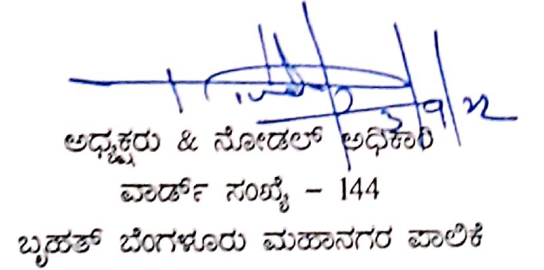 3/9/22
ಅಧ್ಯಕ್ಷರು & ನೋಡಲ್ ಅಧಿಕಾರಿ
ವಾರ್ಡ್ ಸಂಖ್ಯೆ – 144
ಬೃಹತ್ ಬೆಂಗಳೂರು ಮಹಾನಗರ ಪಾಲಿಕೆ